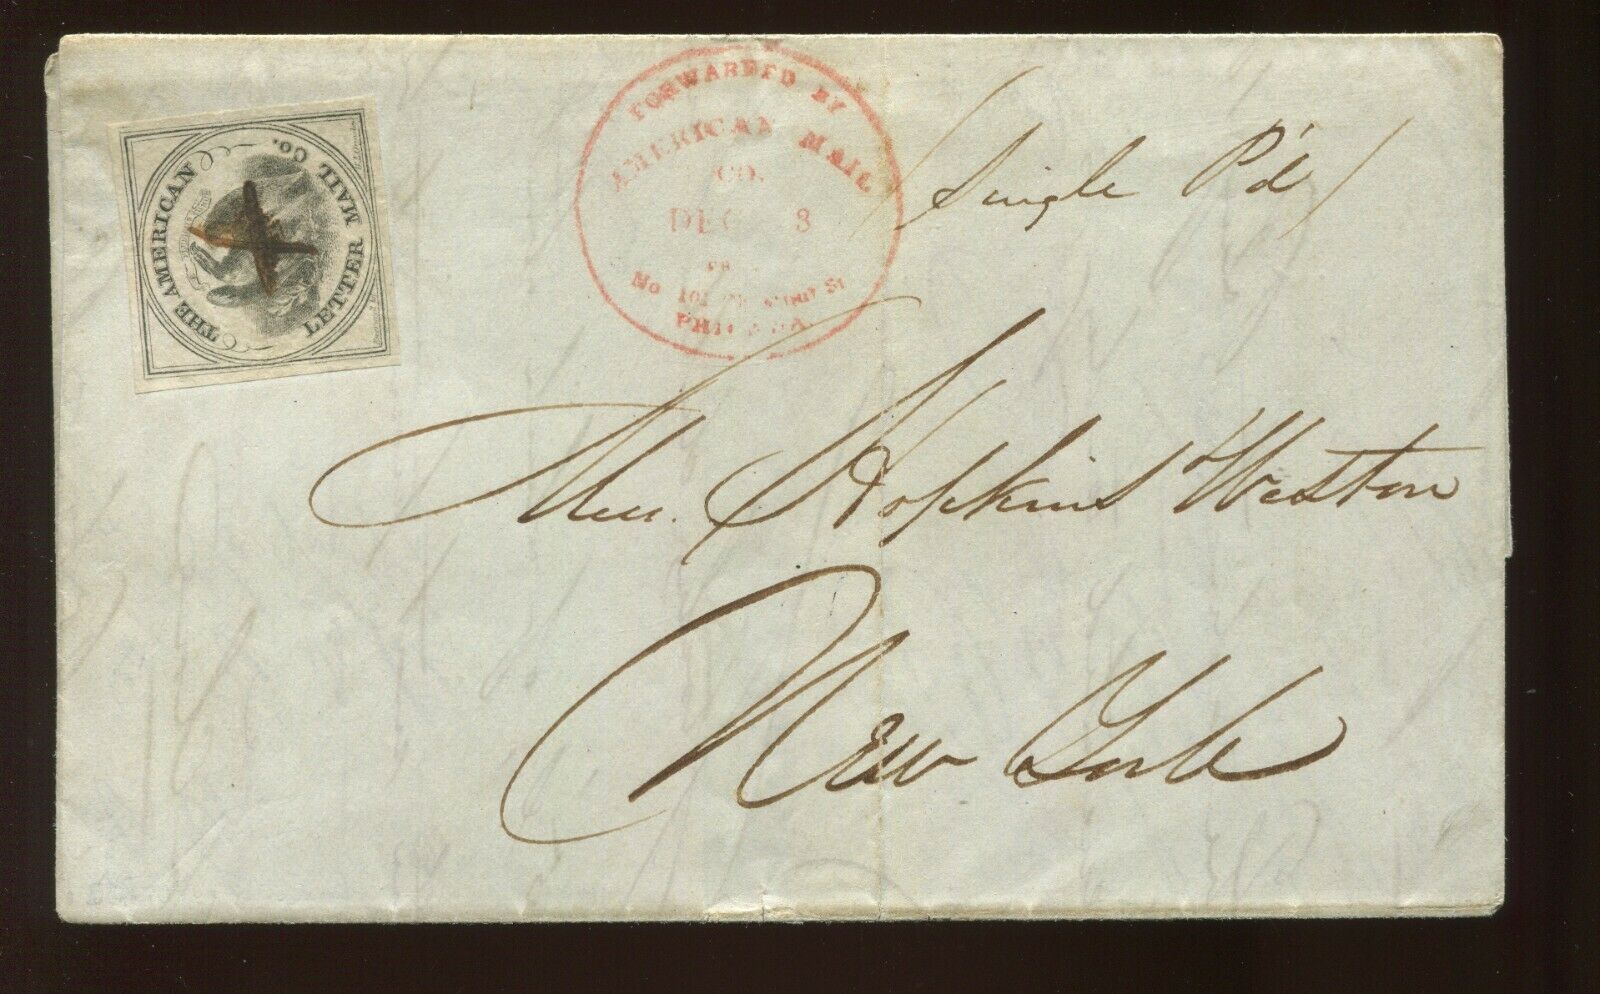 THE AMERICAN
LETTER MAIL CO.
FORWARDED BY
AMERICAN MAIL
CO.
DEC 3
No 101 St
PHILADA
Single Pd
Hopkins Weston
New York